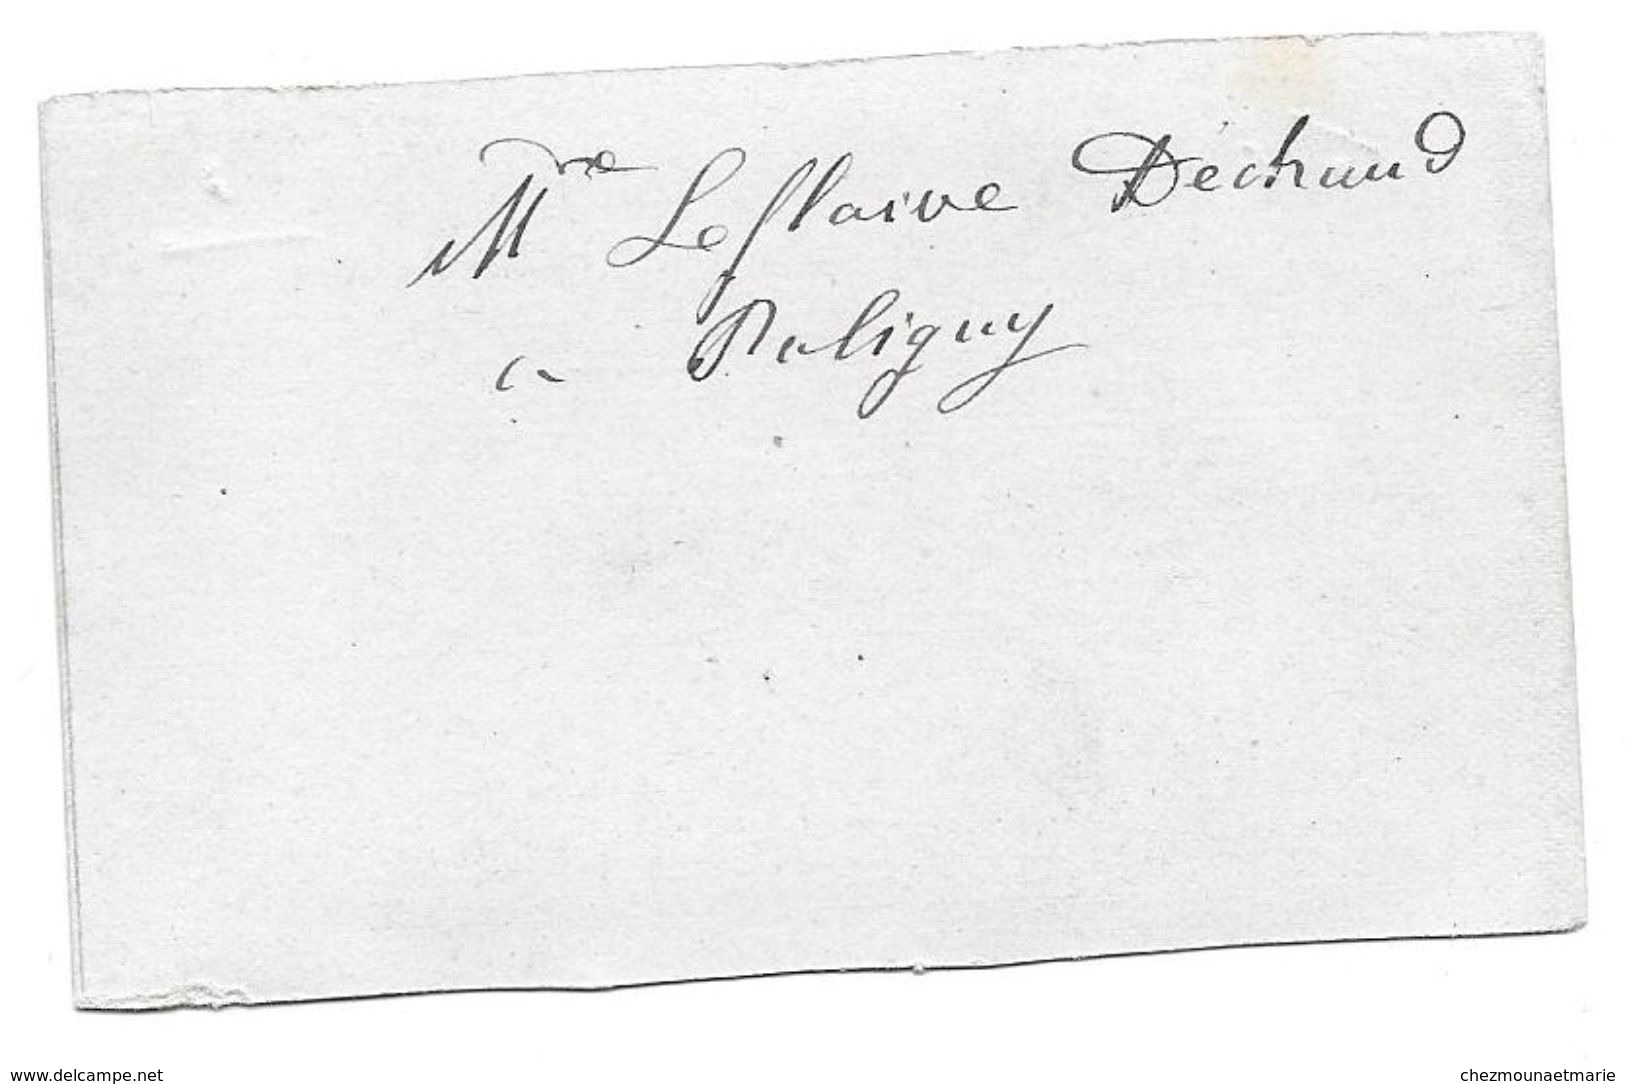 Mre Leflaive Déchaud
a Puligny
www.delcampe.net
chezmounaetmarie